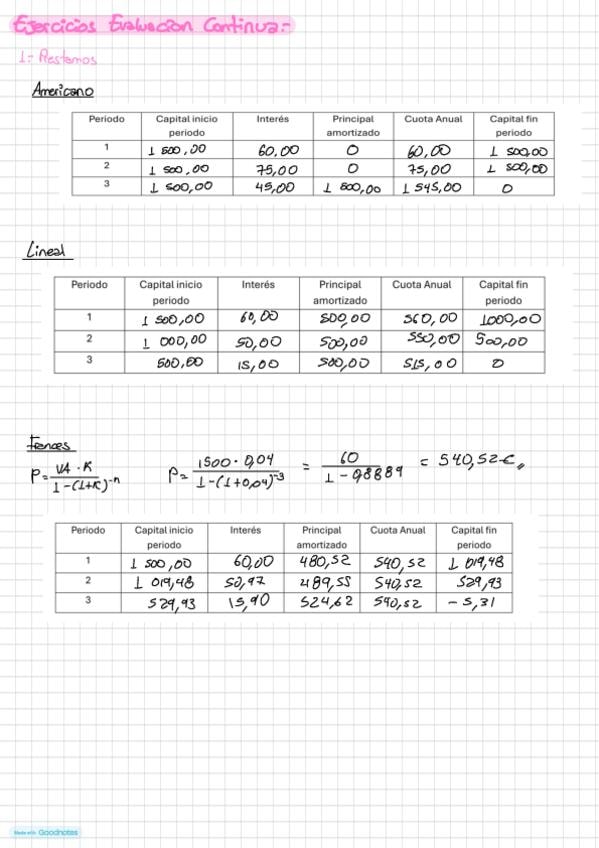 Ejercicios Evaluacion Continua:-
1:- Prestamos
Americano
Periodo Capital inicio periodo Interés Principal amortizado Cuota Anual Capital fin periodo
1 1 500,00 60,00 0 60,00 1 500,00
2 1 500,00 75,00 0 75,00 1 500,00
3 1 500,00 45,00 1 500,00 1 545,00 0
Lineal
Periodo Capital inicio periodo Interés Principal amortizado Cuota Anual Capital fin periodo
1 1 500,00 60,00 500,00 560,00 1000,00
2 1 000,00 50,00 500,00 550,00 500,00
3 500,00 15,00 500,00 515,00 0
Frances
P= VA · K / 1-(1+K)^-n P= 1500 · 0,04 / 1-(1+0,04)^-3 = 60 / 1-0,8889 = 540,52€
Periodo Capital inicio periodo Interés Principal amortizado Cuota Anual Capital fin periodo
1 1 500,00 60,00 480,52 540,52 1 019,48
2 1 019,48 50,97 489,55 540,52 529,93
3 529,93 15,90 524,62 540,52 -5,31
Made with Goodnotes